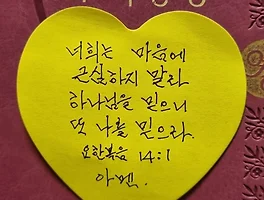 너희는 마음에
근심하지 말라
하나님을 믿으니
또 나를 믿으라.
요한복음 14:1
아멘.